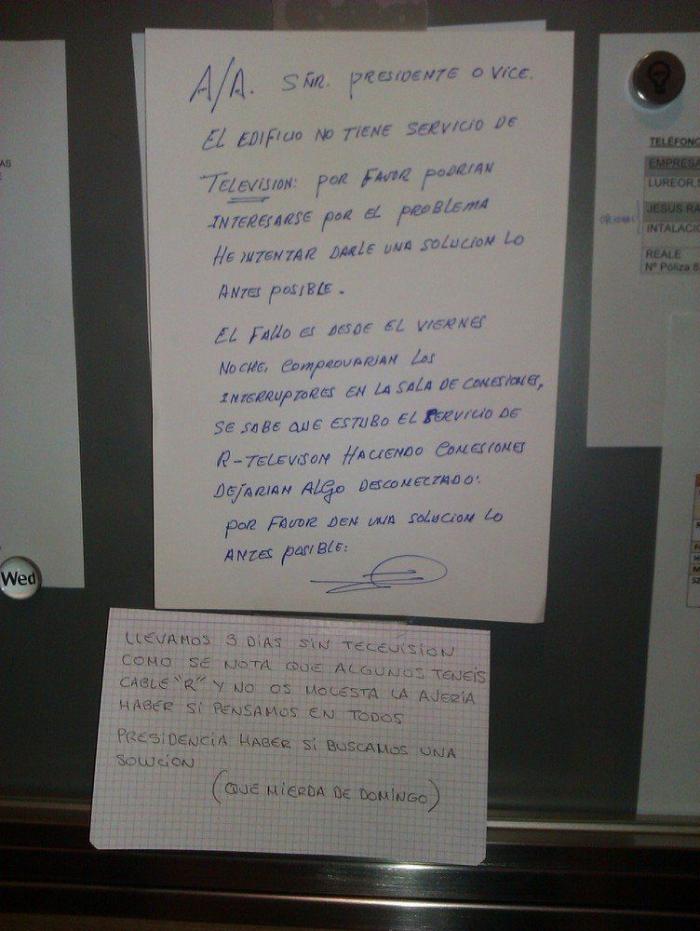 A/A. SÑR. PRESIDENTE O VICE.
EL EDIFICIO NO TIENE SERVICIO DE
TELEVISION: POR FAVOR PODRIAN
INTERESARSE POR EL PROBLEMA
HE INTENTAR DARLE UNA SOLUCION LO
ANTES POSIBLE.
EL FALLO ES DESDE EL VIERNES
NOCHE, COMPROVARIAN LOS
INTERRUPTORES EN LA SALA DE CONESIONES,
SE SABE QUE ESTUBO EL SERVICIO DE
R-TELEVISON HACIENDO CONESIONES
DEJARIAN ALGO DESCONECTADO:
POR FAVOR DEN UNA SOLUCION LO
ANTES POSIBLE:
LLEVAMOS 3 DIAS SIN TELEVISION
COMO SE NOTA QUE ALGUNOS TENEIS
CABLE "R" Y NO OS MOLESTA LA AVERIA
HABER SI PENSAMOS EN TODOS
PRESIDENCIA HABER SI BUSCAMOS UNA
SOLUCION
(QUE MIERDA DE DOMINGO)
Wed
TELÉFONO
EMPRESA
LUREOR,
JESUS RA
INTALACIO
REALE
Nº Póliza 8